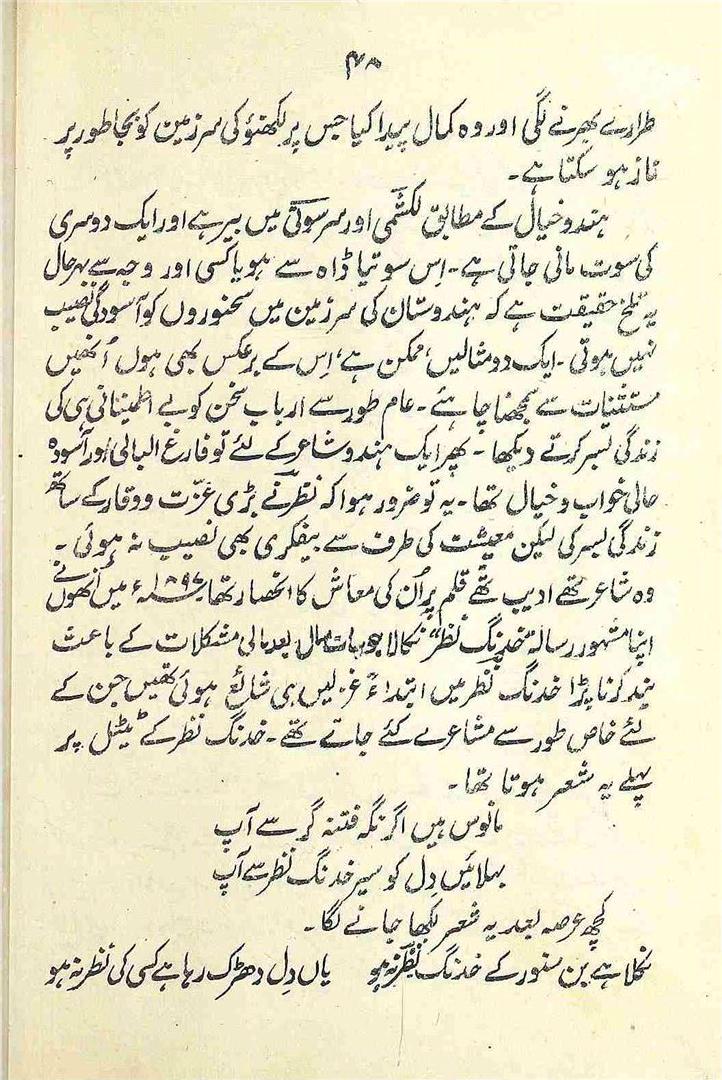 ۴۰
طرارے بھرنے لگی اور وہ کمال پیدا کیا جس پر لکھنؤ کی سرزمین کو بجا طور پر
ناز ہو سکتا ہے۔
ہندو خیال کے مطابق لکشمی اور سرسوتی میں بیر ہے اور ایک دوسری
کی سوت مانی جاتی ہے۔ اِس سوتیا ڈاہ سے ہو یا کسی اور وجہ سے بہرحال
یہ تلخ حقیقت ہے کہ ہندوستان کی سرزمین میں سخنوروں کو آسودگی نصیب
نہیں ہوتی۔ ایک دو مثالیں، ممکن ہے، اِس کے برعکس بھی ہوں اُنھیں
مستثنیات سے سمجھنا چاہئے۔ عام طور سے ارباب سخن کو بے اطمینانی ہی کی
زندگی بسر کرتے دیکھا۔ پھر ایک ہندو شاعر کے لئے تو فارغ البالی اور آسودہ
حالی خواب و خیال تھا۔ یہ تو ضرور ہوا کہ نظرؔ نے بڑی عزّت و وقار کے ساتھ
زندگی بسر کی لیکن معیشت کی طرف سے بیفکری بھی نصیب نہ ہوئی۔
وہ شاعر تھے ادیب تھے قلم پر اُن کی معاش کا انحصار تھا۔ ۱۸۹۷ء میں اُنھوں نے
اپنا مشہور رسالہ "خدنگ نظر" نکالا جو سات سال بعد مالی مشکلات کے باعث
بند کرنا پڑا خدنگ نظر میں ابتداءً غزلیں ہی شائع ہوئی تھیں جن کے
لئے خاص طور سے مشاعرے کئے جاتے تھے۔ خدنگ نظر کے ٹیٹل پر
پہلے یہ شعر ہوتا تھا۔
مانوس ہیں اگر نگہ فتنہ گر سے آپ
بہلائیں دِل کو سیر خدنگ نظر سے آپ
کچھ عرصہ بعد یہ شعر لکھا جانے لگا۔
نکلا ہے بن سنور کے خدنگ نظرؔ نہ ہو یاں دِل دھڑک رہا ہے کسی کی نظر نہ ہو